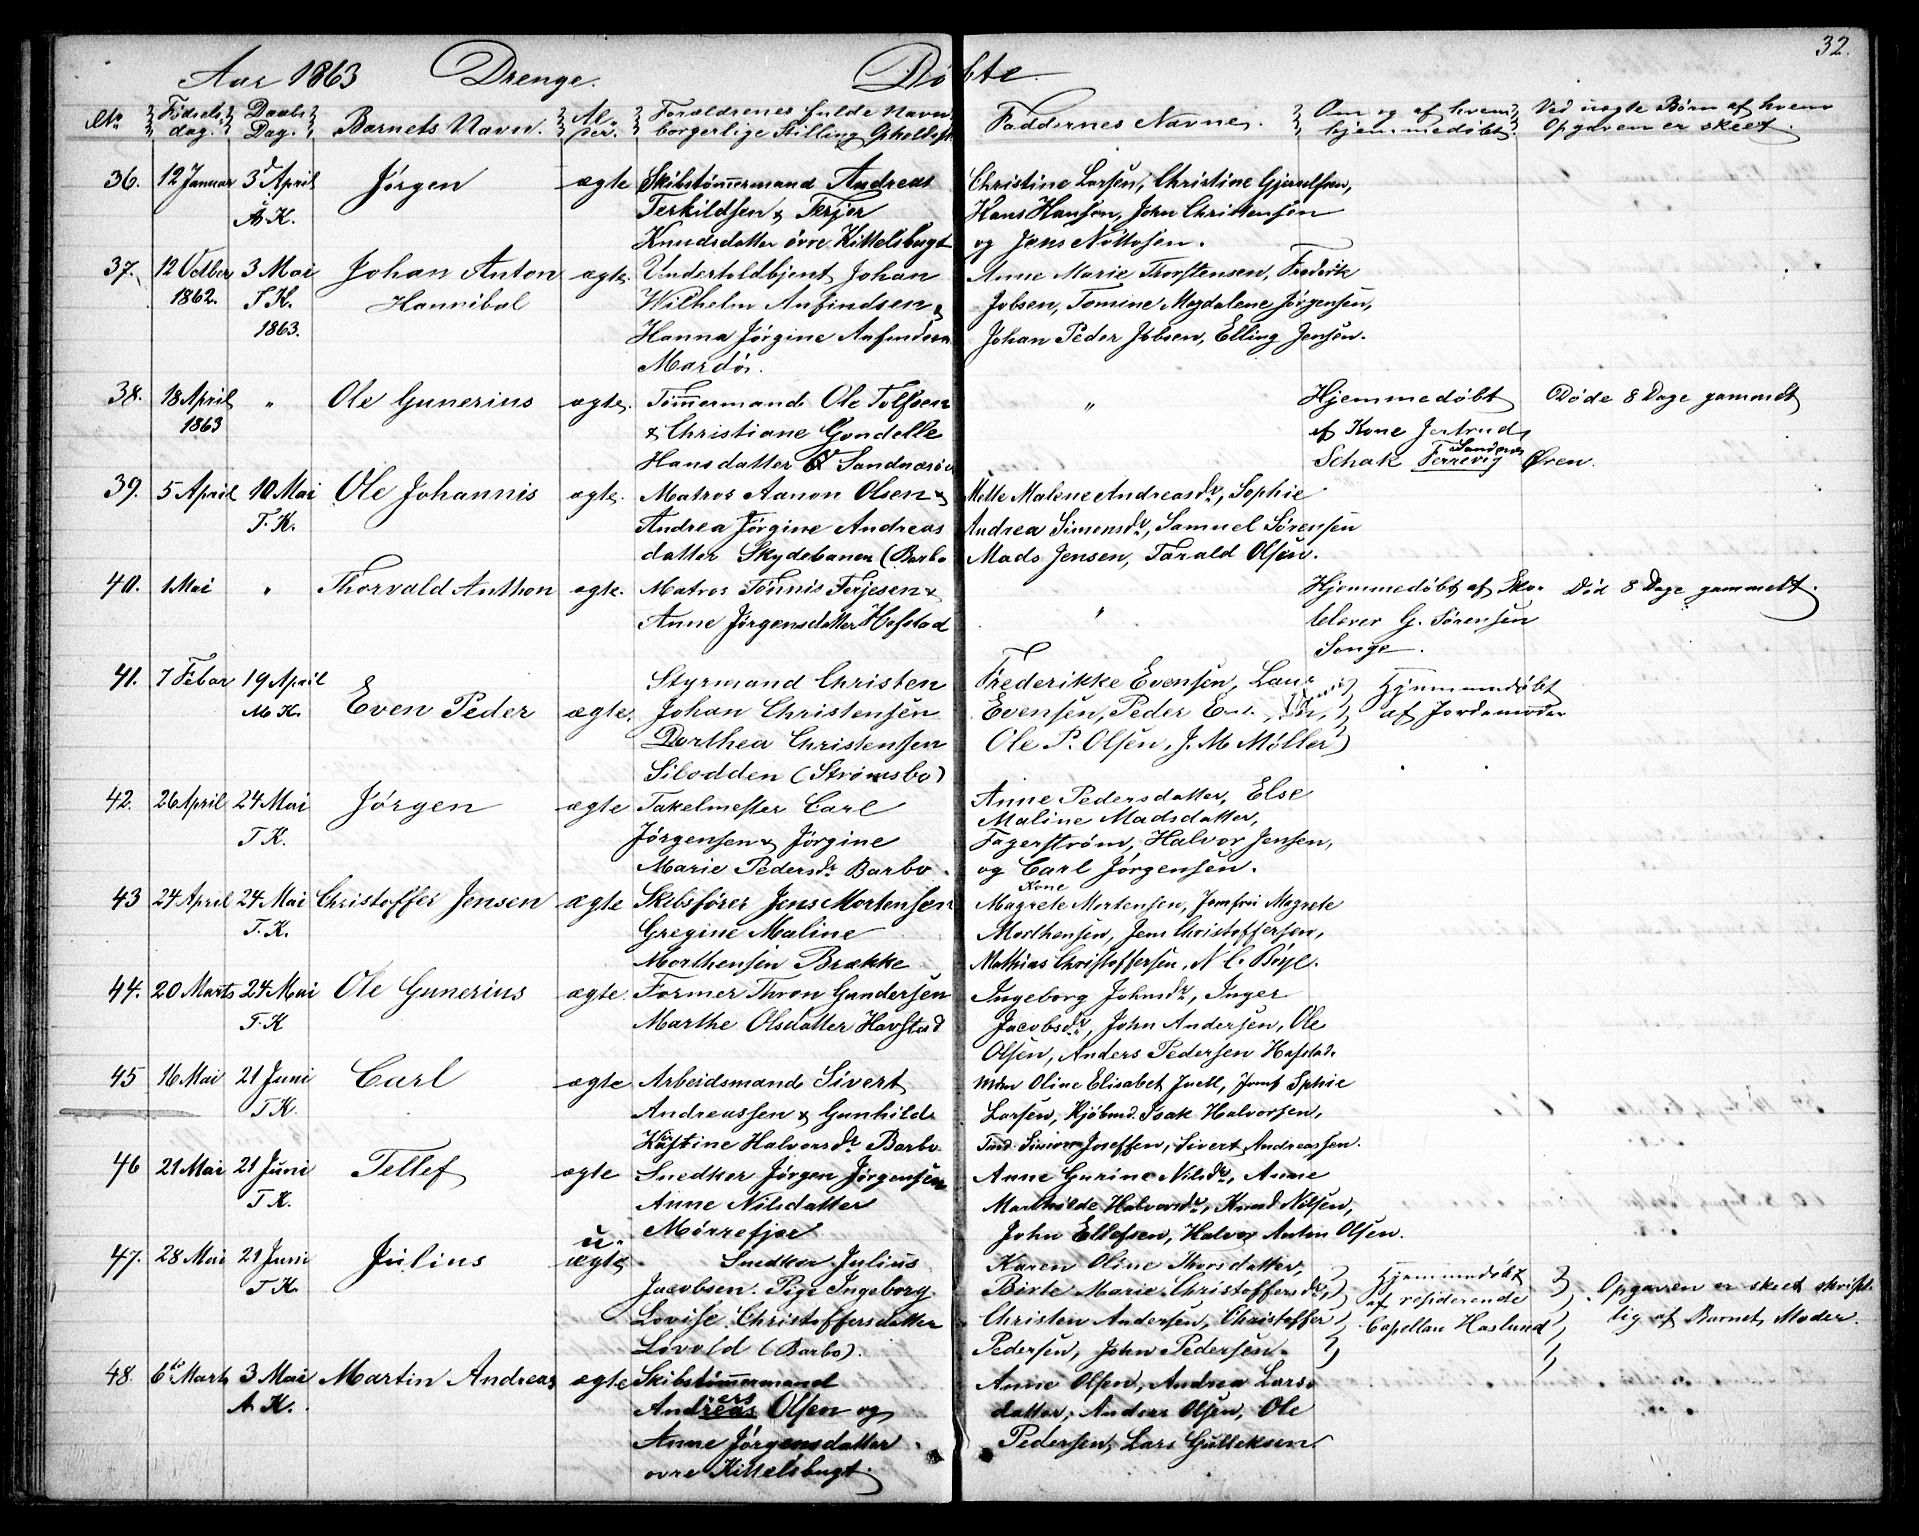 32.
Aar 1863 Drenge. Døbte.
No Fødsels Daabs Barnets Navn. Forældrenes fulde Navn Faddernes Navne. Om og af hvem Ved uægte Børn af hvem
dag. Dag. borgerlige Stilling hjemmedøbt. Opgaven er skeet.
36. 12 Januar 3d April Jörgen ægte Skibstömmermand Andreas Christine Larsen, Christine
A. K. Terkildsen & Terjer Hans Hansen, John Christensen
Knudsdatter övre Kittelsbugt og Jens Nöttosen.
37. 12 Octber 3 Mai Johan Anton ægte Undertoldbtjent Johan Anne Marie Thorstensen, Fredrik
1862. T K. Hannibal Wilhelm Anfindsen & Jobsen, Tomine Magdalene Jörgensen,
1863. Hanna Jörgine Anfindsen Johan Peder Jobsen, Elling Jensen.
Mardö.
38. 18 April " Ole Gunerius ægte. Tömmermand Ole Tolfsen " Hjemmedöbt Döde 8 Dage gammelt
1863 & Christiane Gondelle af Kone Jertrud
Hansdatter Sandnæs Schak Ferrevig Sandum Ören.
39. 5 April 10 Mai Ole Johannis ægte. Matros Aanon Olsen & Mette Malene Andreasdr, Sophie
T. K. Andrea Jörgine Andreas Andrea Simonsdr, Samuel Sörensen
datter Skydebanen (Barbo Mads Jensen, Tarald Olsen.
40. 1 Mai " Thorvald Anthon ægte. Matros Tönnis Terjesen & " Hjemmedöbt af Sko- Död 8 Dage gammelt.
Anne Jörgensdatter Hofstad lelærer G. Sörensen
Songe.
41. 7 Febar 19 April Even Peder ægte. Styrmand Christen Frederikke Evensen, Hjemmedöbt
M. K. Johan Christensen Evensen, Peder af Jordemoder
Dorthea Christensen Ole P. Olsen, J. M. Møller
Silodden (Strömsbo)
42. 26 April 24 Mai Jörgen ægte Takelmester Carl Anne Pedersdatter, Else
T K. Jörgensen & Jörgine Maline Madsdatter,
Marie Pedersdr Barbo. Fagerström, Halvor Jensen,
og Carl Jörgensen.
43 24 April 24 Mai Christoffer Jensen ægte Skibsförer Jens Mortensen Kone Magrete Mortensen, Jomfru Magrete
T. K. Gregine Maline Morthensen, Jens Christoffersen,
Morthensen Brække Mathias Christoffersen, N C. Böye.
44. 20 Marts 24 Mai Ole Gunerius ægte. Former Thron Gundersen Ingeborg Johnsdr, Inger
T. K Marthe Olsdatter Havstad Jacobsdr, John Andersen, Ole
Olsen, Anders Pedersen Hafstad.
45 16 Mai 21 Juni Carl ægte Arbeidsmand Sivert Mdm Oline Elisabet Juell, Jomf Sphie
T K. Andreassen & Gunhild Larsen, Kjöbmd. Isak Halvorsen,
Kirstine Halvorsdr Barbo Simon Joseffen, Sivert Andreassen.
46 21 Mai 21 Juni Tellef ægte Snedker Jörgen Jörgensen Anne Gurine Nilsdr, Anne
T K. Anne Nilsdatter Marthilde Halvorsdr, Knud Nilsen,
Mörrefjær John Ellefsen, Halvor Anton Olsen.
47. 28 Mai 21 Juni Julius u-ægte. Snedker Julius Karen Oline Thorsdatter, Hjemmedöbt Opgaven er skeet skrift-
T K. Jacobsen. Pige Ingeborg Birte Marie Christoffersdr, af residerende lig af Barnets Moder.
Lovise Christoffersdatter Christen Andersen, Christoffer Capellan Haslund
Lövold (Barbo). Pedersen, John Pedersen.
48. 6te Marts 3 Mai Martin Andreas ægte Skibstömmermand Anne Olsen, Andrea Lars-
A. K. Andreas ers Olsen og datter, Anders Olsen, Ole
Anne Jörgensdatter Pedersen, Lars Gulleksen
övre Kittelsbugt.